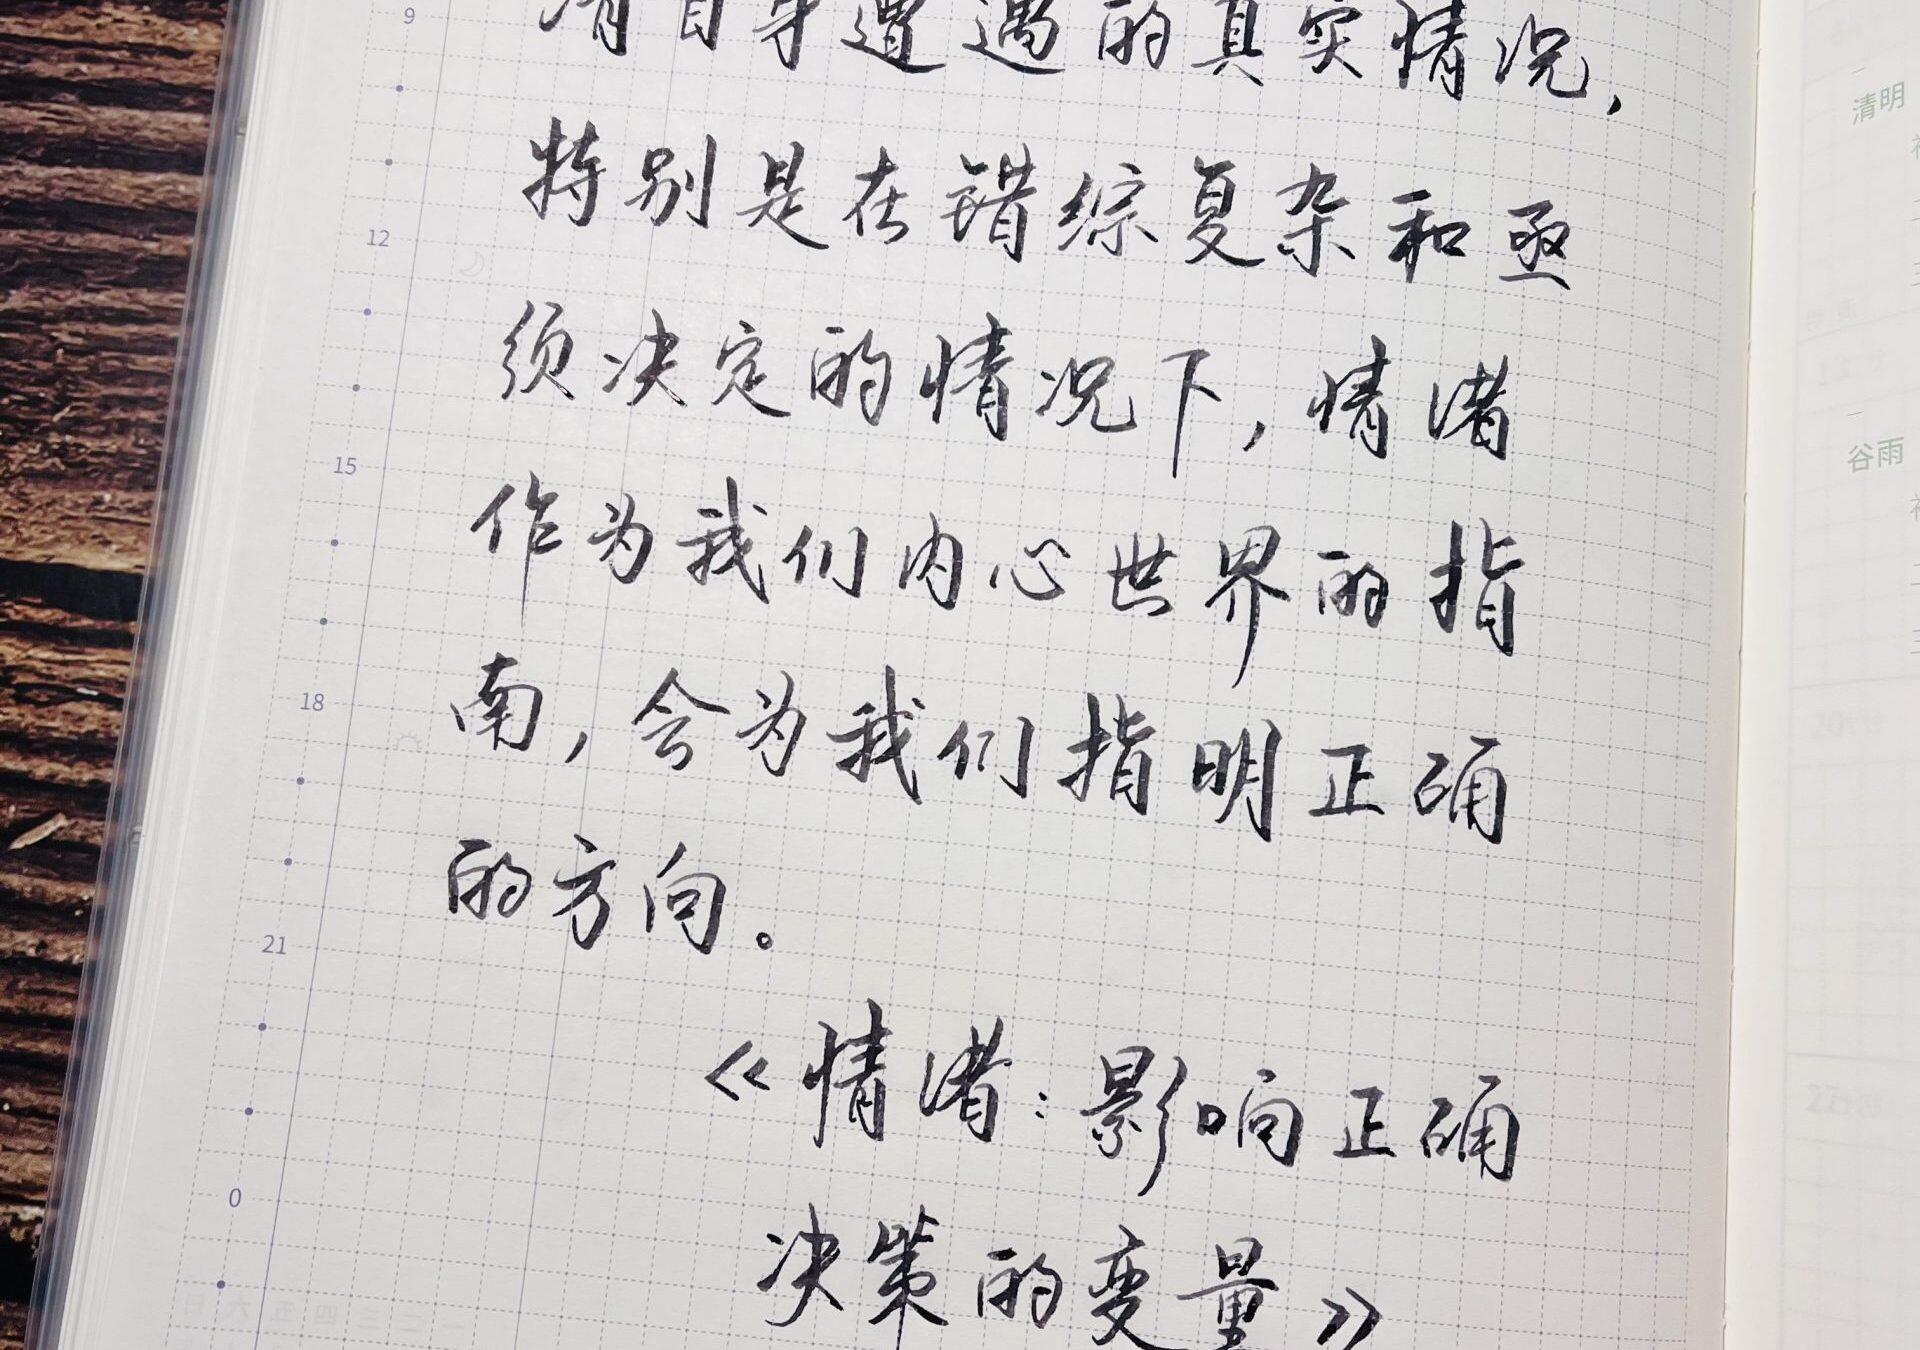 清自身遭遇的真实情况,
特别是在错综复杂和亟
须决定的情况下,情绪
作为我们内心世界的指
南,会为我们指明正确
的方向。
《情绪:影响正确
决策的变量》
9
12
15
18
21
0
清明
谷雨